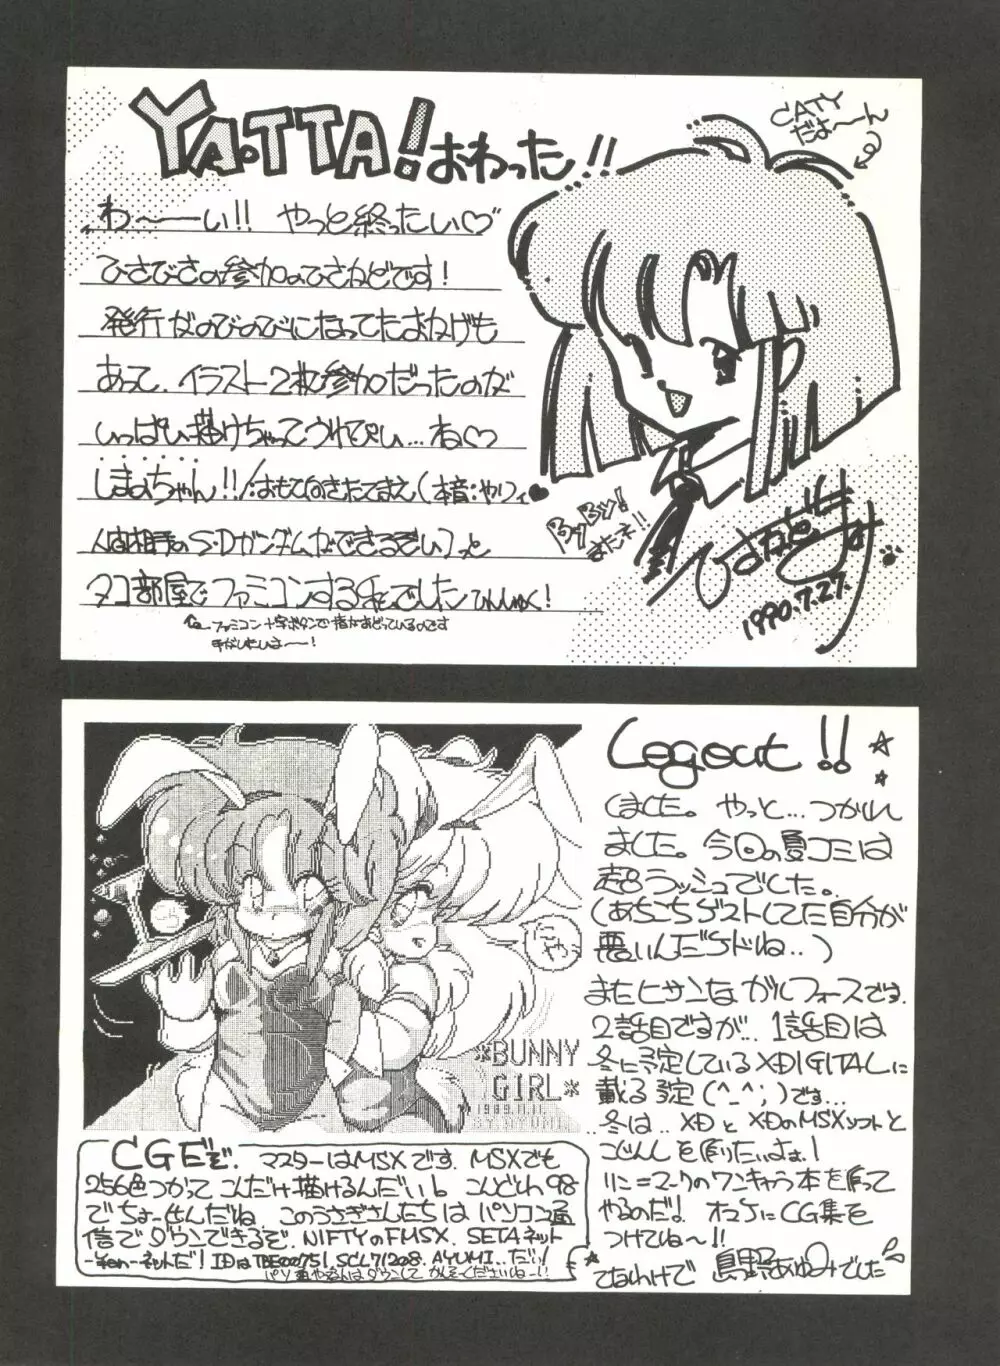 YATTA! おわった!!
CATY
だよ〜ん
わ〜ーい!! やっと終ったい♡
ひさびさの参加のひさねどです!
発行がのびのびになってたおかげも
あって、イラスト2枚参加だったのが
いっぱい描けちゃってうれぴい…ね♡
しまいちゃん!!
人間相手のS・Dガンダムができるぞい」と
タコ部屋でファミコンする私でしたひゅしゅく!
ファミコン十字ボタンで指がおどっているのです
By By!
またネ!!
1990.7.27.
Logout!!
しました。やっと…つかれ
ました。今回の夏コミは
超ラッシュでした。
(あちこちゲストしてた自分が
悪いんだケドね..)
またヒサンなガルフォースです.
2話目ですが…1話目は
冬に予定しているXDIGITALに
載る予定(^_^;)です…
..冬は..XDとXDのMSXソフトと
こぴんしを創りたいよぉ!
リニ=マークのワンキャラ本を作って
やるのだ! オマケにCG集を
つけてね〜!!
てなわけで 島野あゆみでした
いやっ
*BUNNY
GIRL*
1989.11.11.
BY.AYUMI
CGだぞ. マスターはMSXです. MSXでも
256色つかって こんだけ描けるんだいb こんどわ98
でちょー化んだね. このうさぎさんたちは パソコン通
信でダウンできるぞ. NIFTYのFMSX. SETAネット
ネットだ! IDは TBE00751. SCL71208. AYUMI...だ!